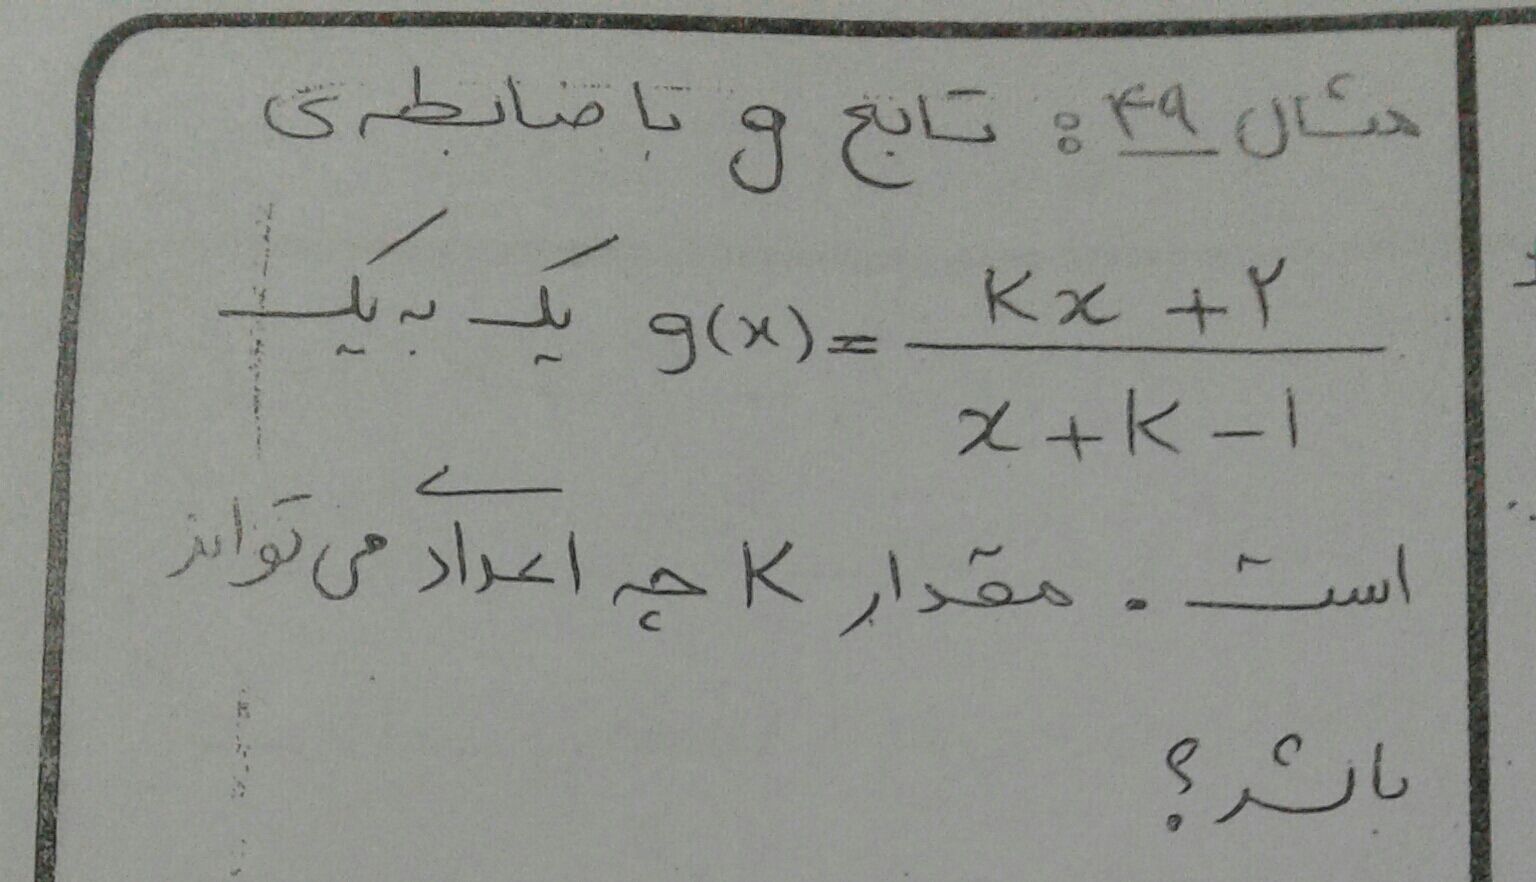 مثال ۴۹: تابع g با ضابطه‌ی
g(x) = (kx + ۲) / (x + k - ۱) یک به یک
است. مقدار k چه اعدادی می‌تواند
باشد؟